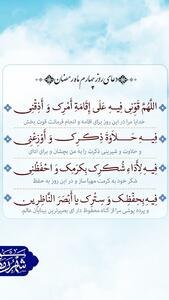 دعای روز چهارم ماه رمضان
اللَّهُمَّ قَوِّنِی فِیهِ عَلَی إِقَامَةِ أَمْرِکَ وَ أَذِقْنِی
خدایا مرا در این روز برای اقامه و انجام فرمانت قوت بخش
فِیهِ حَلاَوَةَ ذِکْرِکَ وَ أَوْزِعْنِی
و حلاوت و شیرینی ذکرت را به من بچشان و برای ادای
فِیهِ لِأَدَاءِ شُکْرِکَ بِکَرَمِکَ وَ احْفَظْنِی
شکر خود به کرمت مهیا ساز و در این روز به حفظ
فِیهِ بِحِفْظِکَ وَ سِتْرِکَ یَا أَبْصَرَ النَّاظِرِینَ
و پرده پوشی مرا از گناه محفوظ دار ای بصیرترین بینایان عالم.